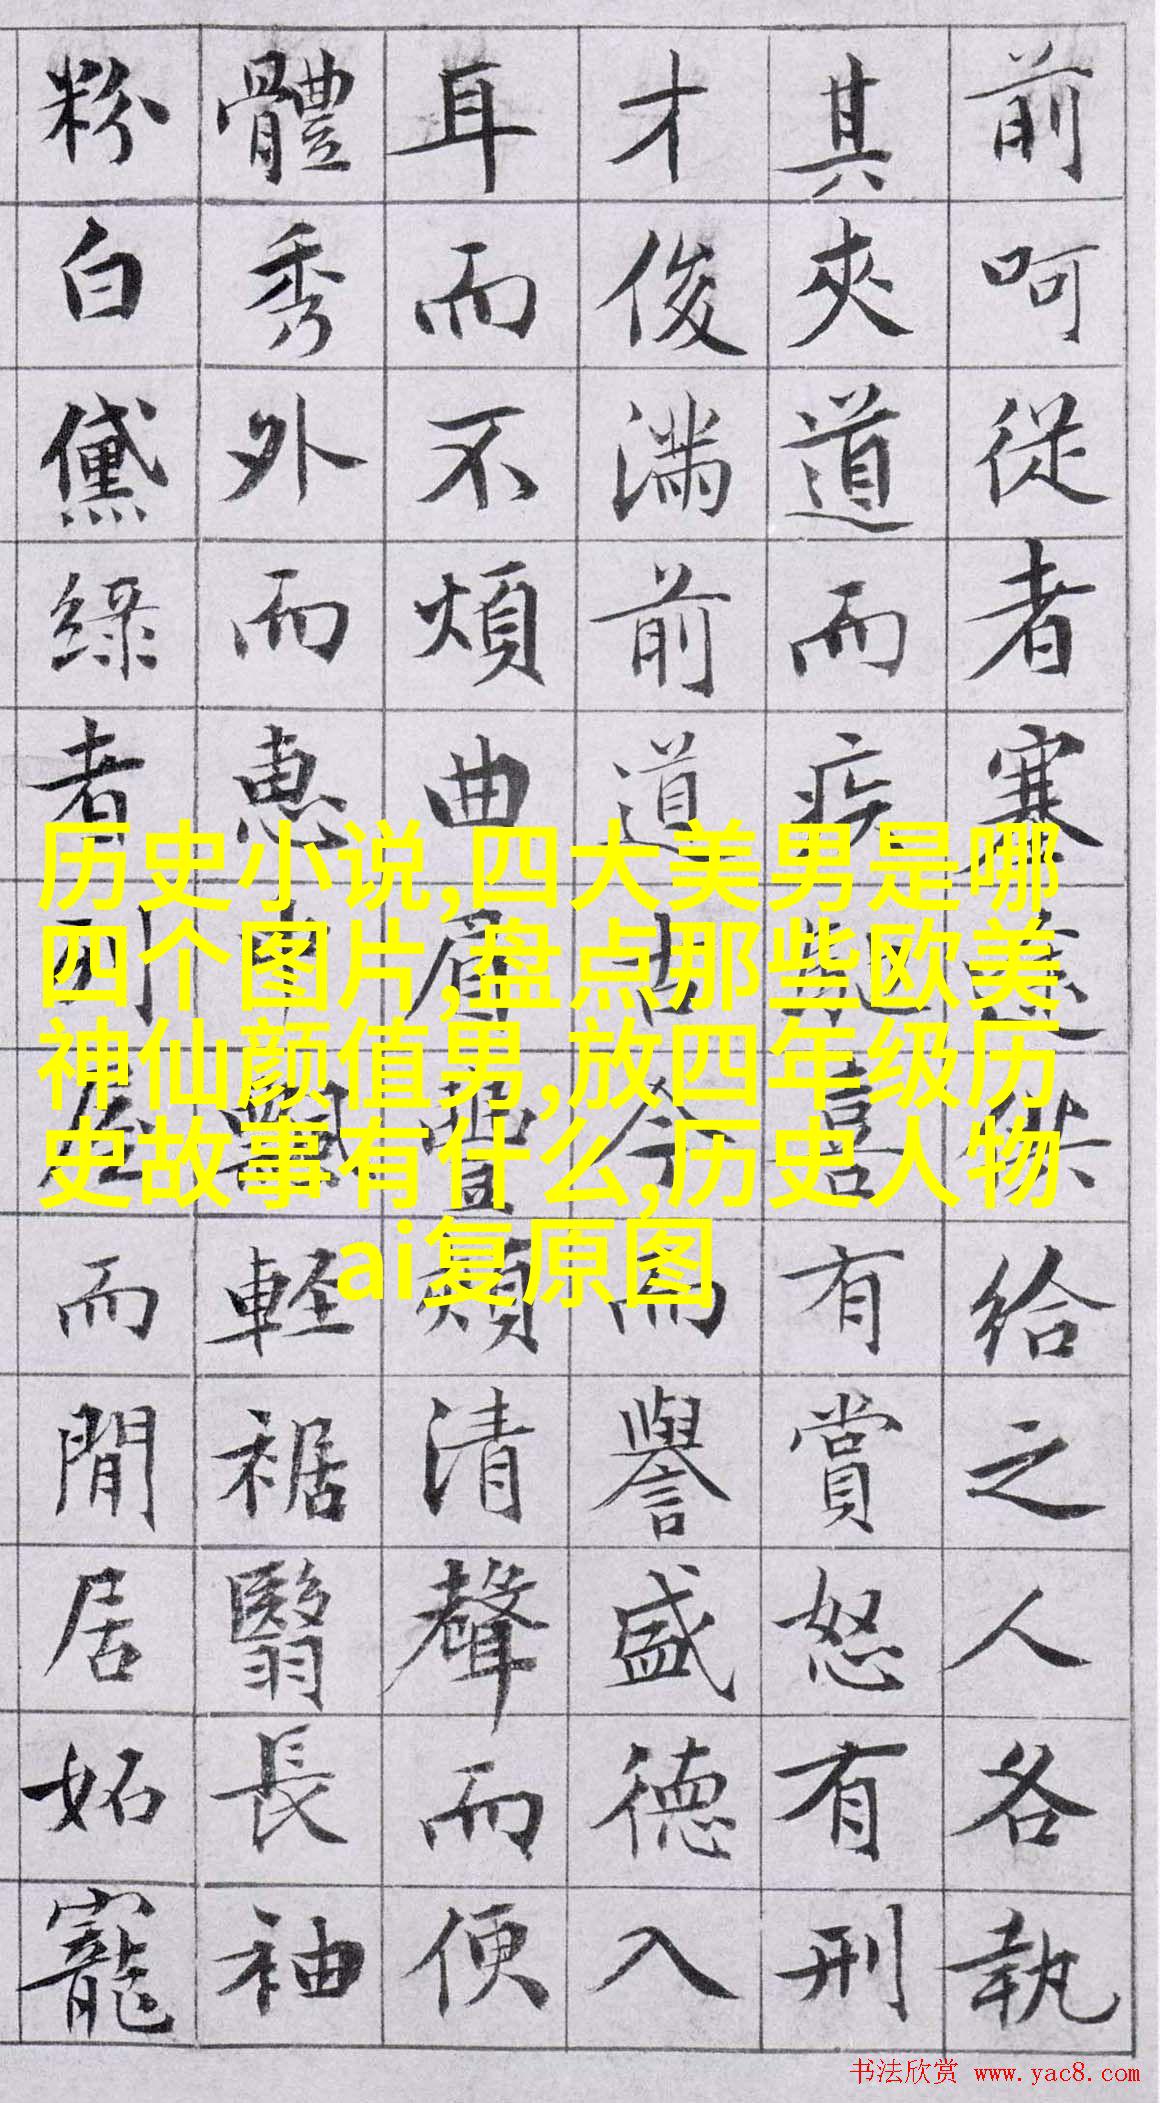 前呵從者塞途供給之人各執
其夾道而疾馳喜有賞怒有刑
才俊滿前道古今而譽盛德入
耳而不煩曲眉豐頰清聲而便
體秀外而惠中飄輕裾翳長袖
粉白黛綠者列屋而閒居妬寵
历史小说,四大美男是哪
四个图片,盘点那些欧美
神仙颜值男,放四年级历
史故事有什么,历史人物
ai复原图
书法欣赏 www.yac8.com